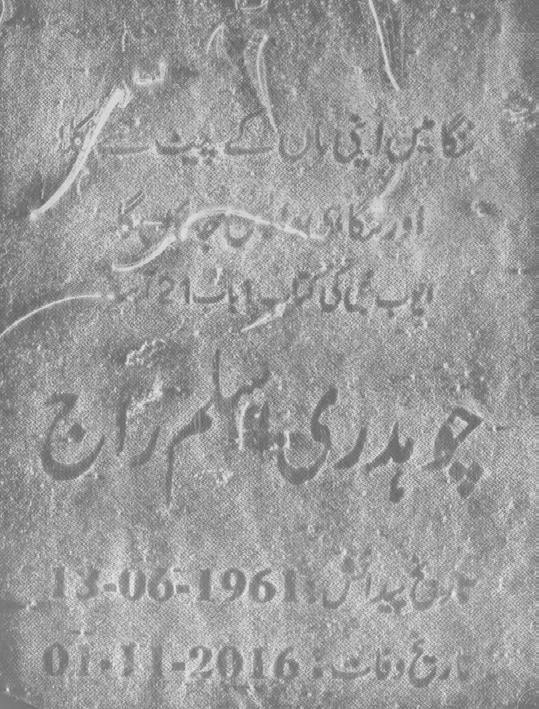 ننگا میں اپنی ماں کے پیٹ سے نکلا
اور ننگا ہی واپس جاؤں گا
ایوب نبی کی کتاب 1 باب 21 آیت
چوہدری اسلم راج
تاریخ پیدائش: 13-06-1961
تاریخ وفات: 01-11-2016